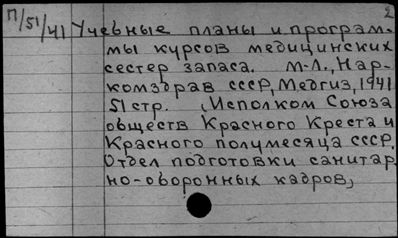 П/51/41 Учебные планы и програм- 2
мы курсов медицинских
сестер запаса. М-Л., Нар-
комздрав СССР, Медгиз, 1941
51 стр. (Исполком Союза
обществ Красного Креста и
Красного полумесяца СССР.
Отдел подготовки санитар
но-оборонных кадров)